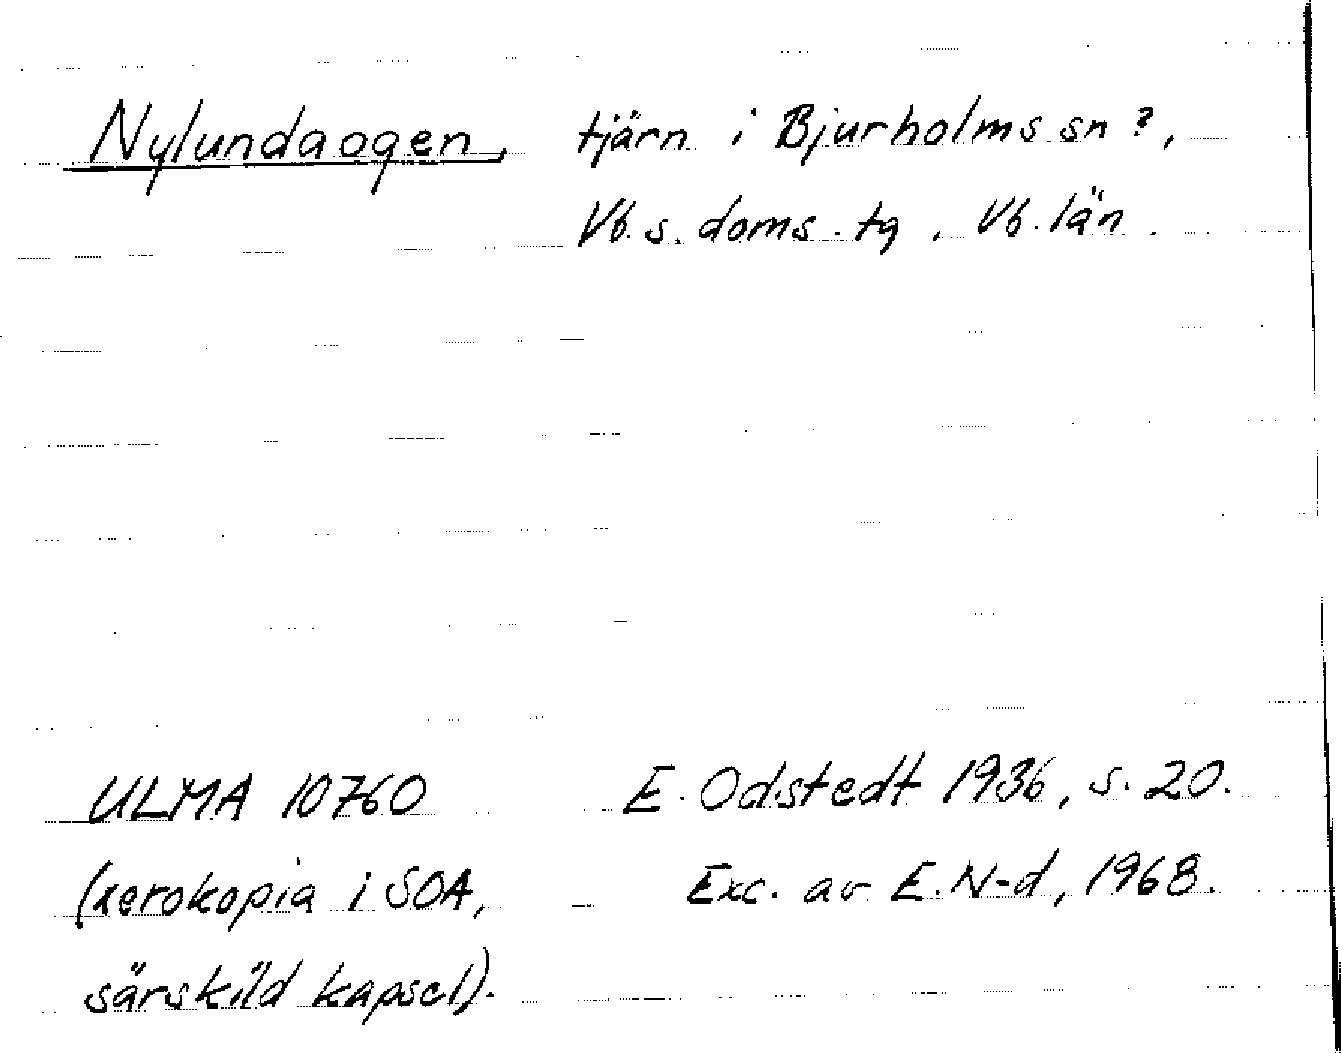 Nylundaogen, tjärn i Bjurholms sn?,
Vb. s. doms. tg, Vb. län.
ULMA 10760 E. Odstedt 1936, s. 20.
(xerokopia i SOA, Exc. av E. N-d, 1968.
särskild kapsel).